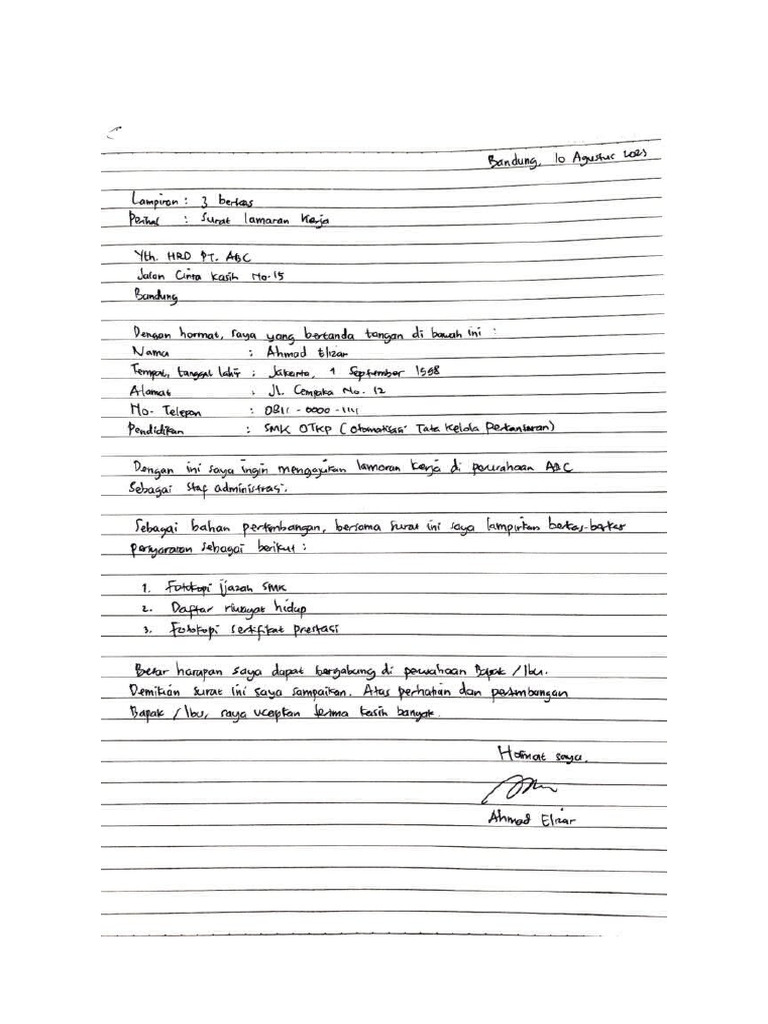 Bandung, 10 Agustus 2023
Lampiran : 3 berkas
Perihal : Surat lamaran kerja
Yth. HRD PT. ABC
Jalan Cinta Kasih No.15
Bandung
Dengan hormat, saya yang bertanda tangan di bawah ini :
Nama : Ahmad Elizar
Tempat, tanggal lahir : Jakarta, 1 September 1998
Alamat : Jl. Cempaka No. 12
No. Telepon : 0811-0000-1111
Pendidikan : SMK OTKP (Otomatisasi Tata Kelola Perkantoran)
Dengan ini saya ingin mengajukan lamaran kerja di perusahaan ABC
Sebagai staf administrasi.
Sebagai bahan pertimbangan, bersama surat ini saya lampirkan berkas-berkas
persyaratan sebagai berikut :
1. Fotokopi ijazah SMK
2. Daftar riwayat hidup
3. Fotokopi sertifikat prestasi
Besar harapan saya dapat bergabung di perusahaan Bapak/Ibu.
Demikian surat ini saya sampaikan. Atas perhatian dan pertimbangan
Bapak/Ibu, saya ucapkan terima kasih banyak.
Hormat saya.
Ahmad Elizar